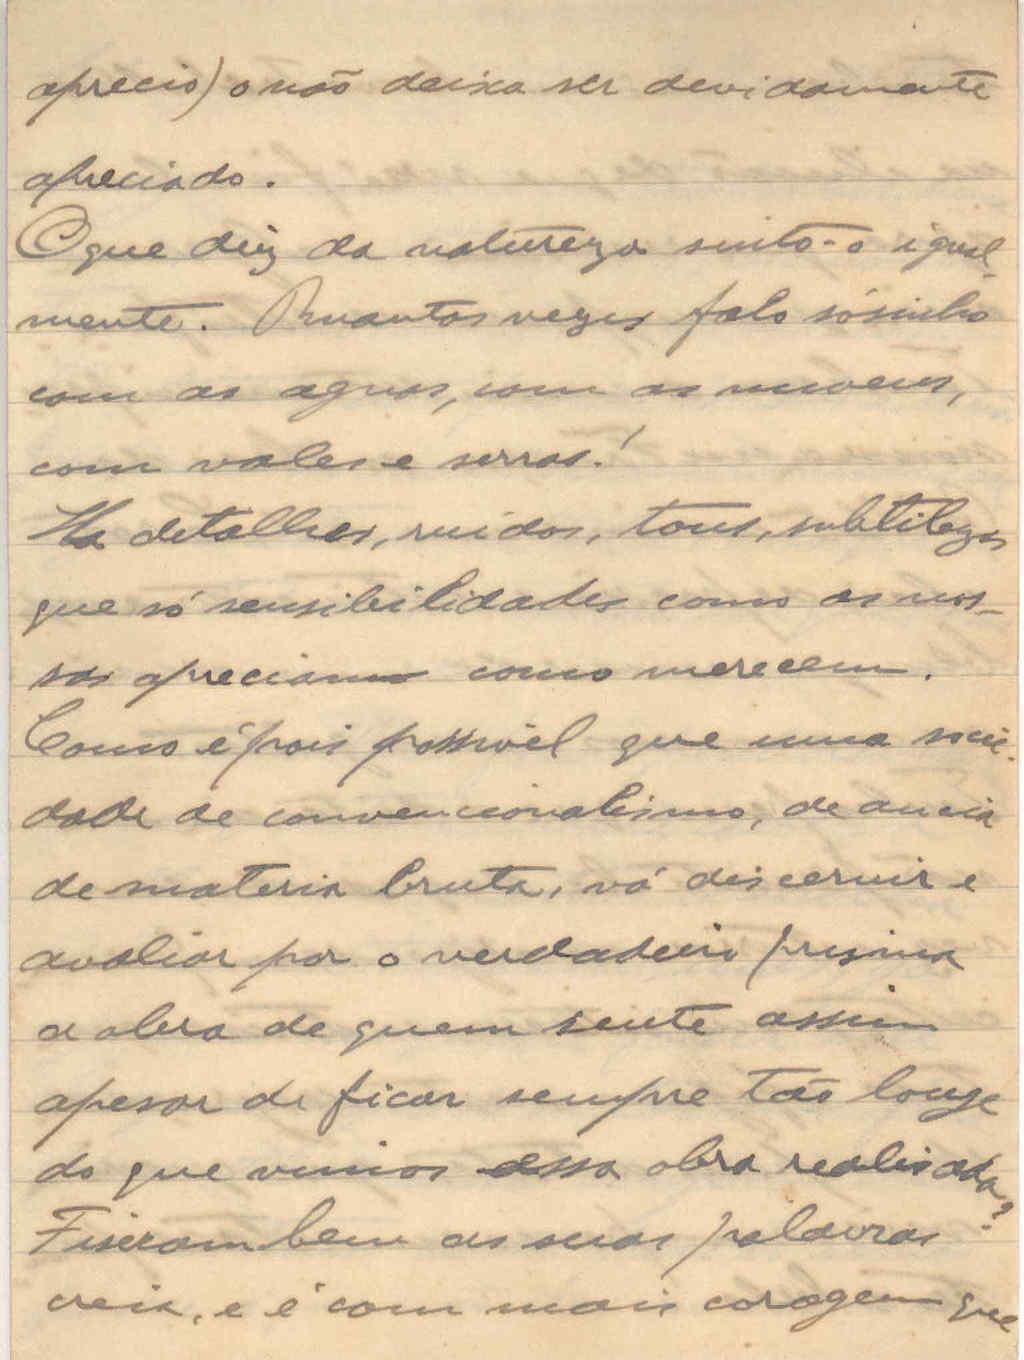 aprecio) o não deixa ser devidamente
apreciado.
O que diz da natureza sinto-o igual-
mente. Quantas vezes falo sósinho
com as aguas, com as nuvens,
com vales e serras!
Ha detalhes, ruidos, tons, subtilezas
que só sensibilidades como as nos-
sas apreciam como merecem.
Como é pois possivel que uma socie-
dade de convencionalismo, de ancia
de materia bruta, vá discernir e
avaliar por o verdadeiro prisma
a obra de quem sente assim
apesar de ficar sempre tão longe
do que vimos essa obra realisada?
Fiseram bem as suas palavras
creia, e é com mais coragem que